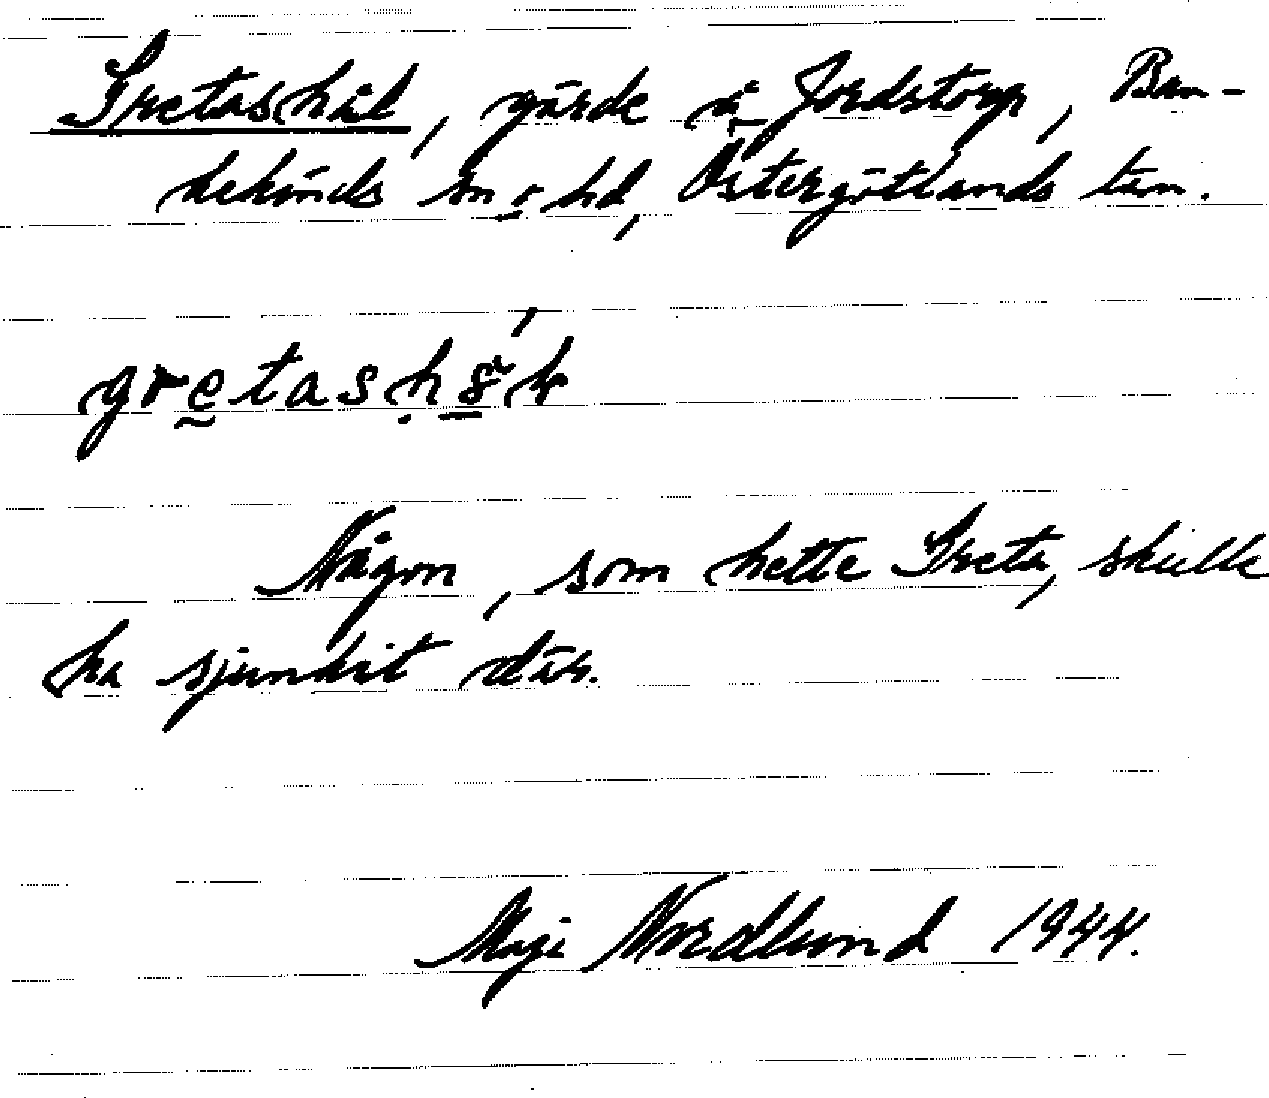 Gretashål, gärde å Jordstorp, Ban-
kekinds sn o. hd, Östergötlands län.
Någon, som hette Greta, skulle
ha sjunkit där.
Maji Nordlund 1944.